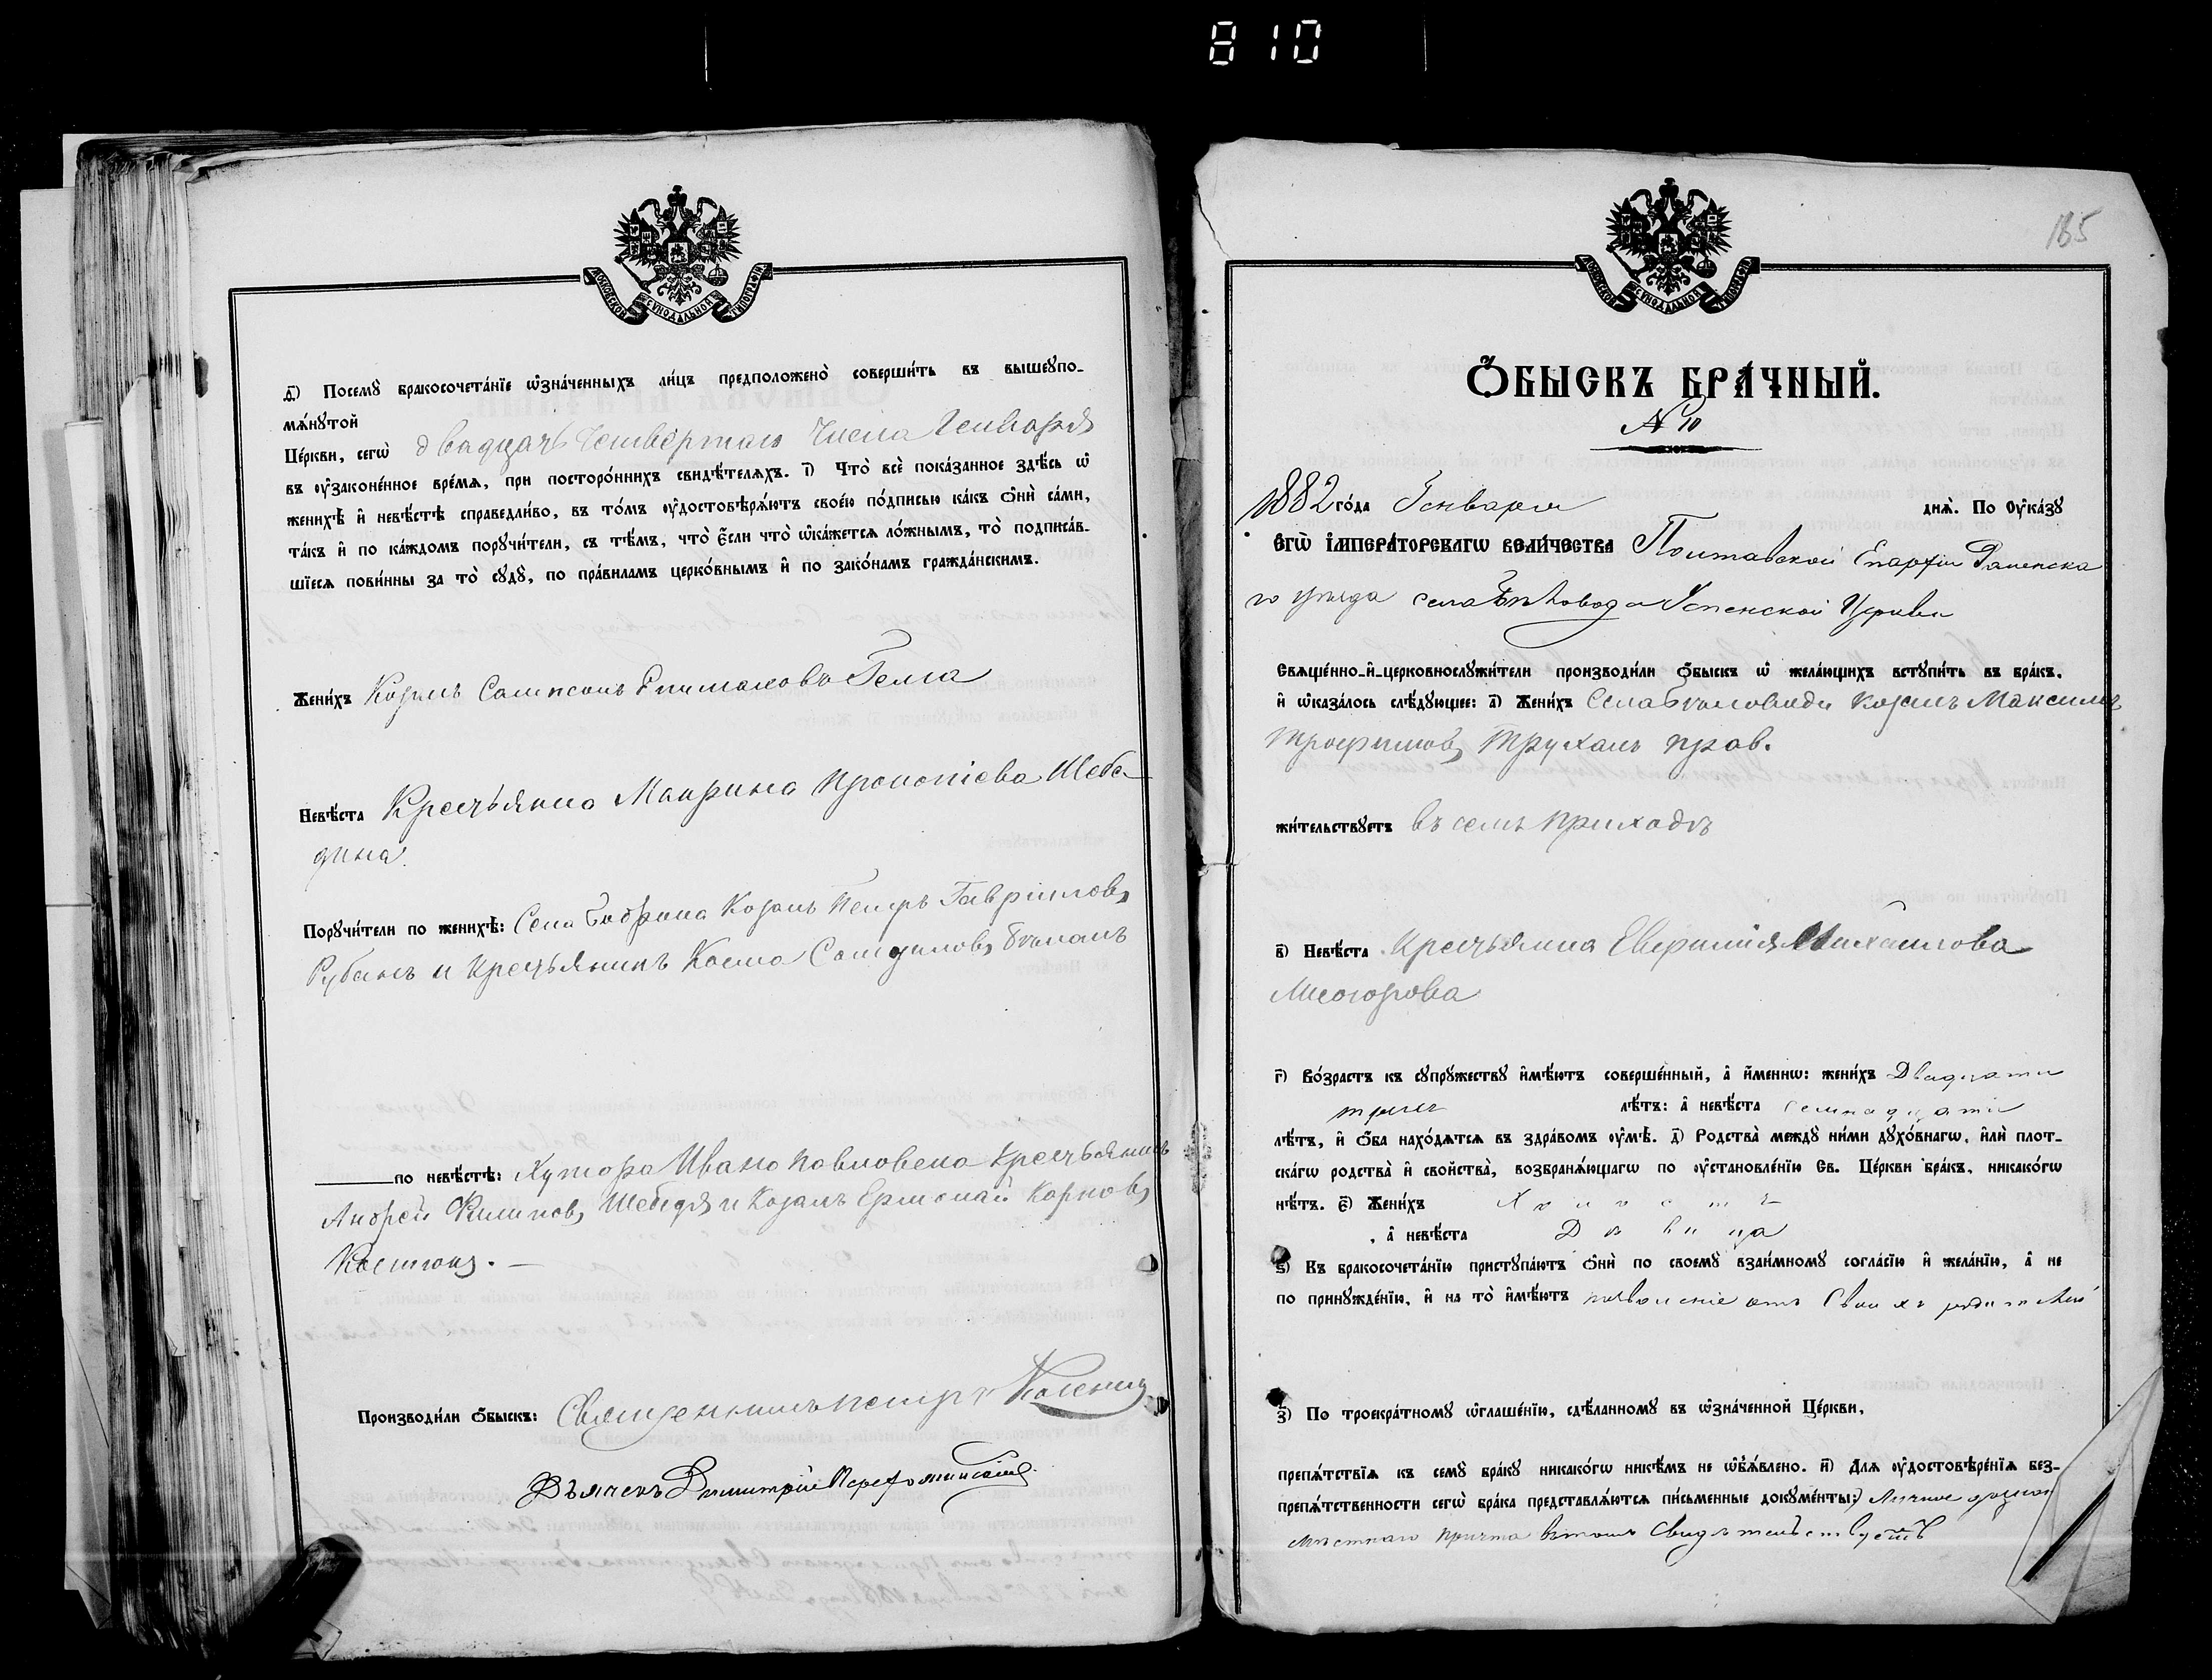 810
МОСКОВСКОЙ СУНОДАЛЬНОЙ ТИПОГРАФІИ
д҃) Посемꙋ̀ бракосочета́нїе ѡ҆зна́ченныхъ ли́цъ предположено̀ соверши́ть въ вышеꙋпо-
мѧ́нꙋтой
Це́ркви, сегѡ̀ двадцать Четвертаго Числа Генваря
въ ᲂу҆законе́нное вре́мѧ, при посторо́ннихъ свидѣ́телѧхъ. і҃) Что̀ всѐ пока́занное здѣ́сь ѡ҆
женихѣ̀ и҆ невѣ́стѣ справедли́во, въ то́мъ ᲂу҆достовѣрѧ́ютъ свое́ю по́дписью ка́къ ѻ҆нѝ са́ми,
та́къ и҆ по ка́ждомъ порꙋчи́тели, съ тѣ́мъ, что̀ є҆́сли что̀ ѡ҆ка́жетсѧ ло́жнымъ, то̀ подписа́в-
шїесѧ пови́нны за то̀ сꙋдꙋ̀, по пра́виламъ церко́внымъ и҆ по зако́намъ гражда́нскимъ.
Жени́хъ Козакъ Сампсонъ Гема
Невѣ́ста Крестьянка Макрина Прокопіева Шебе
дина
Порꙋчи́тели по женихѣ̀: Села Бобрика Козакъ Петръ Гавріиловъ
Рубанъ и Крестьянинъ Косма Самуиловъ
по невѣ́стѣ: Хутора Ивано Павловска Крестьянинъ
Андрей Филиповъ Шебедя и Козакъ Ермолай Карповъ
Костюкъ. —
Производи́ли ѻ҆́быскъ: Священникъ Петръ
Дьячекъ Димитрій
185
МОСКОВСКОЙ СУНОДАЛЬНОЙ ТИПОГРАФІИ
Ѻ҆́БЫСКЪ БРА́ЧНЫЙ.
№ 10
1882 го́да Генваря днѧ̀. По Оу҆ка́зꙋ
ЕГѠ̀ І҆МПЕРА́ТОРСКАГѠ ВЕЛИ́ЧЕСТВА Полтавской Епархіи Роменска
го уѣзда села Бѣловода Успенской Церкви
Свѧще́нно-и҆-церковнослꙋжи́тели производи́ли ѻ҆́быскъ ѡ҆ жела́ющихъ встꙋпи́ть въ бра́къ,
и҆ ѡ҆каза́лось слѣ́дꙋющее: а҃) Жени́хъ Села Бѣловода Козакъ Максимъ
Трофимовъ Труханъ прав.
жи́тельствꙋетъ въ семъ приходѣ
в҃) Невѣ́ста Крестьянка Евфимія Михаилова
Мисюрова
г҃) Во́зрастъ къ сꙋпрꙋжествꙋ и҆мѣ́ютъ соверше́нный, а҆ и҆́меннѡ: жени́хъ Двадцати
трехъ лѣ́тъ: а҆ невѣ́ста семнадцати
лѣ́тъ, и҆ ѻ҆́ба нахо́дѧтсѧ въ здра́вомъ ᲂу҆мѣ̀. д҃) Родства̀ междꙋ̀ ни́ми дꙋхо́внагѡ, и҆лѝ плот-
ска́гѡ родства̀ и҆ сво́йства, возбранѧ́ющагѡ по ᲂу҆становле́нїю Св. Це́ркви бра́къ, никако́гѡ
нѣ́тъ. є҃) Жени́хъ Холостъ
, а҆ невѣ́ста Дѣвица
ѕ҃) Къ бракосочета́нїю пристꙋпа́ютъ ѻ҆нѝ по своемꙋ̀ взаи́мномꙋ согла́сїю и҆ жела́нїю, а҆ не
по принꙋжде́нїю, и҆ на то̀ и҆мѣ́ютъ позволеніе отъ Своихъ родителей
з҃) По троекра́тномꙋ ѡ҆глаше́нїю, сдѣ́ланномꙋ въ ѡ҆зна́ченной Це́ркви,
препѧ́тствїѧ къ семꙋ̀ бра́кꙋ никако́гѡ никѣ́мъ не ѡ҆б̾ѧ́влено. и҃) Для ᲂу҆достовѣре́нїѧ без-
препѧ́тственности сегѡ̀ бра́ка представлѧ́ютсѧ пи́сьменные докꙋме́нты: Личное
мѣстнаго причта въ томъ Свидѣтельствуетъ